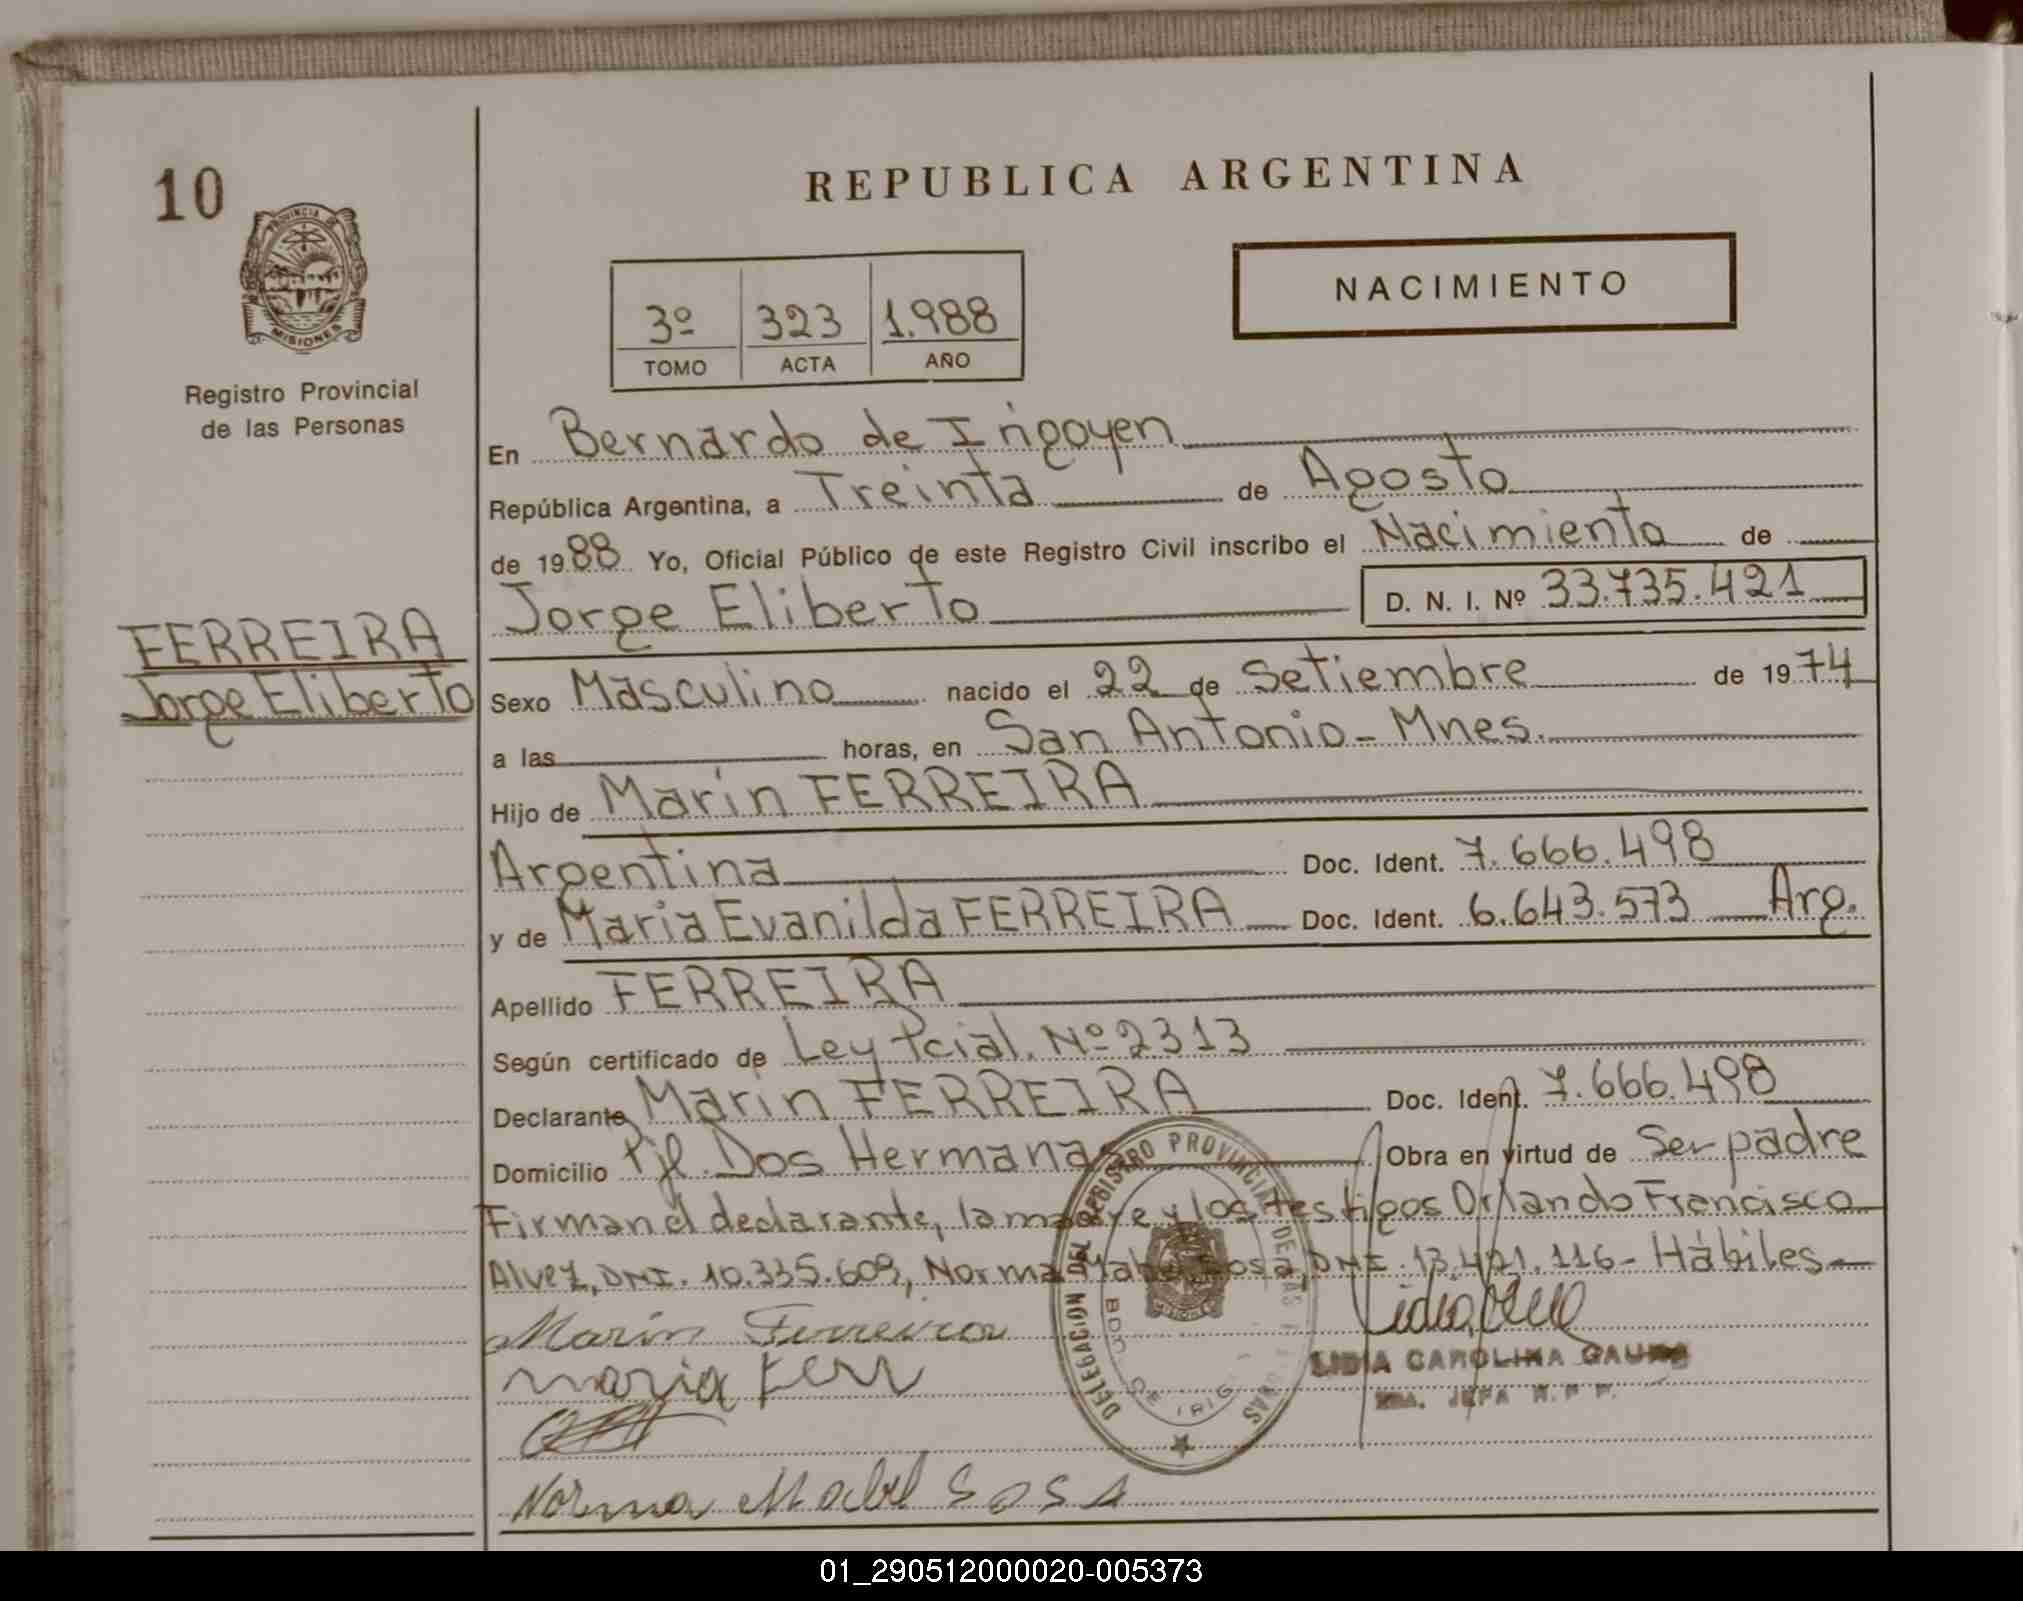 10
PROVINCIA DE
MISIONES
Registro Provincial
de las Personas
FERREIRA
Jorge Eliberto
REPUBLICA ARGENTINA
NACIMIENTO
3º 323 1.988
TOMO ACTA AÑO
En Bernardo de Irigoyen
República Argentina, a Treinta de Agosto
de 1988 Yo, Oficial Público de este Registro Civil inscribo el Nacimiento de
Jorge Eliberto D. N. I. Nº 33.735.421
Sexo Masculino nacido el 22 de Setiembre de 1974
a las horas, en San Antonio - Mnes.
Hijo de Marin FERREIRA
Argentina Doc. Ident. 7.666.498
y de Maria Evanilda FERREIRA Doc. Ident. 6.643.573 Arg.
Apellido FERREIRA
Según certificado de Ley Pcial. Nº 2313
Declarante Marin FERREIRA Doc. Ident. 7.666.498
Domicilio Pje. Dos Hermanas Obra en virtud de Ser padre
Firman el declarante, la madre y los testigos Orlando Francisco
Alvez, DNI. 10.335.609, Norma Mabel Sosa, DNI. 13.421.116 - Hábiles
DELEGACION DEL REGISTRO PROVINCIAL DE LAS PERSONAS
BDO. DE IRIG
Marin Ferreira
maria Ferr
LIDIA CAROLINA
JEFA R. P. P.
Norma Mabel Sosa
01_290512000020-005373